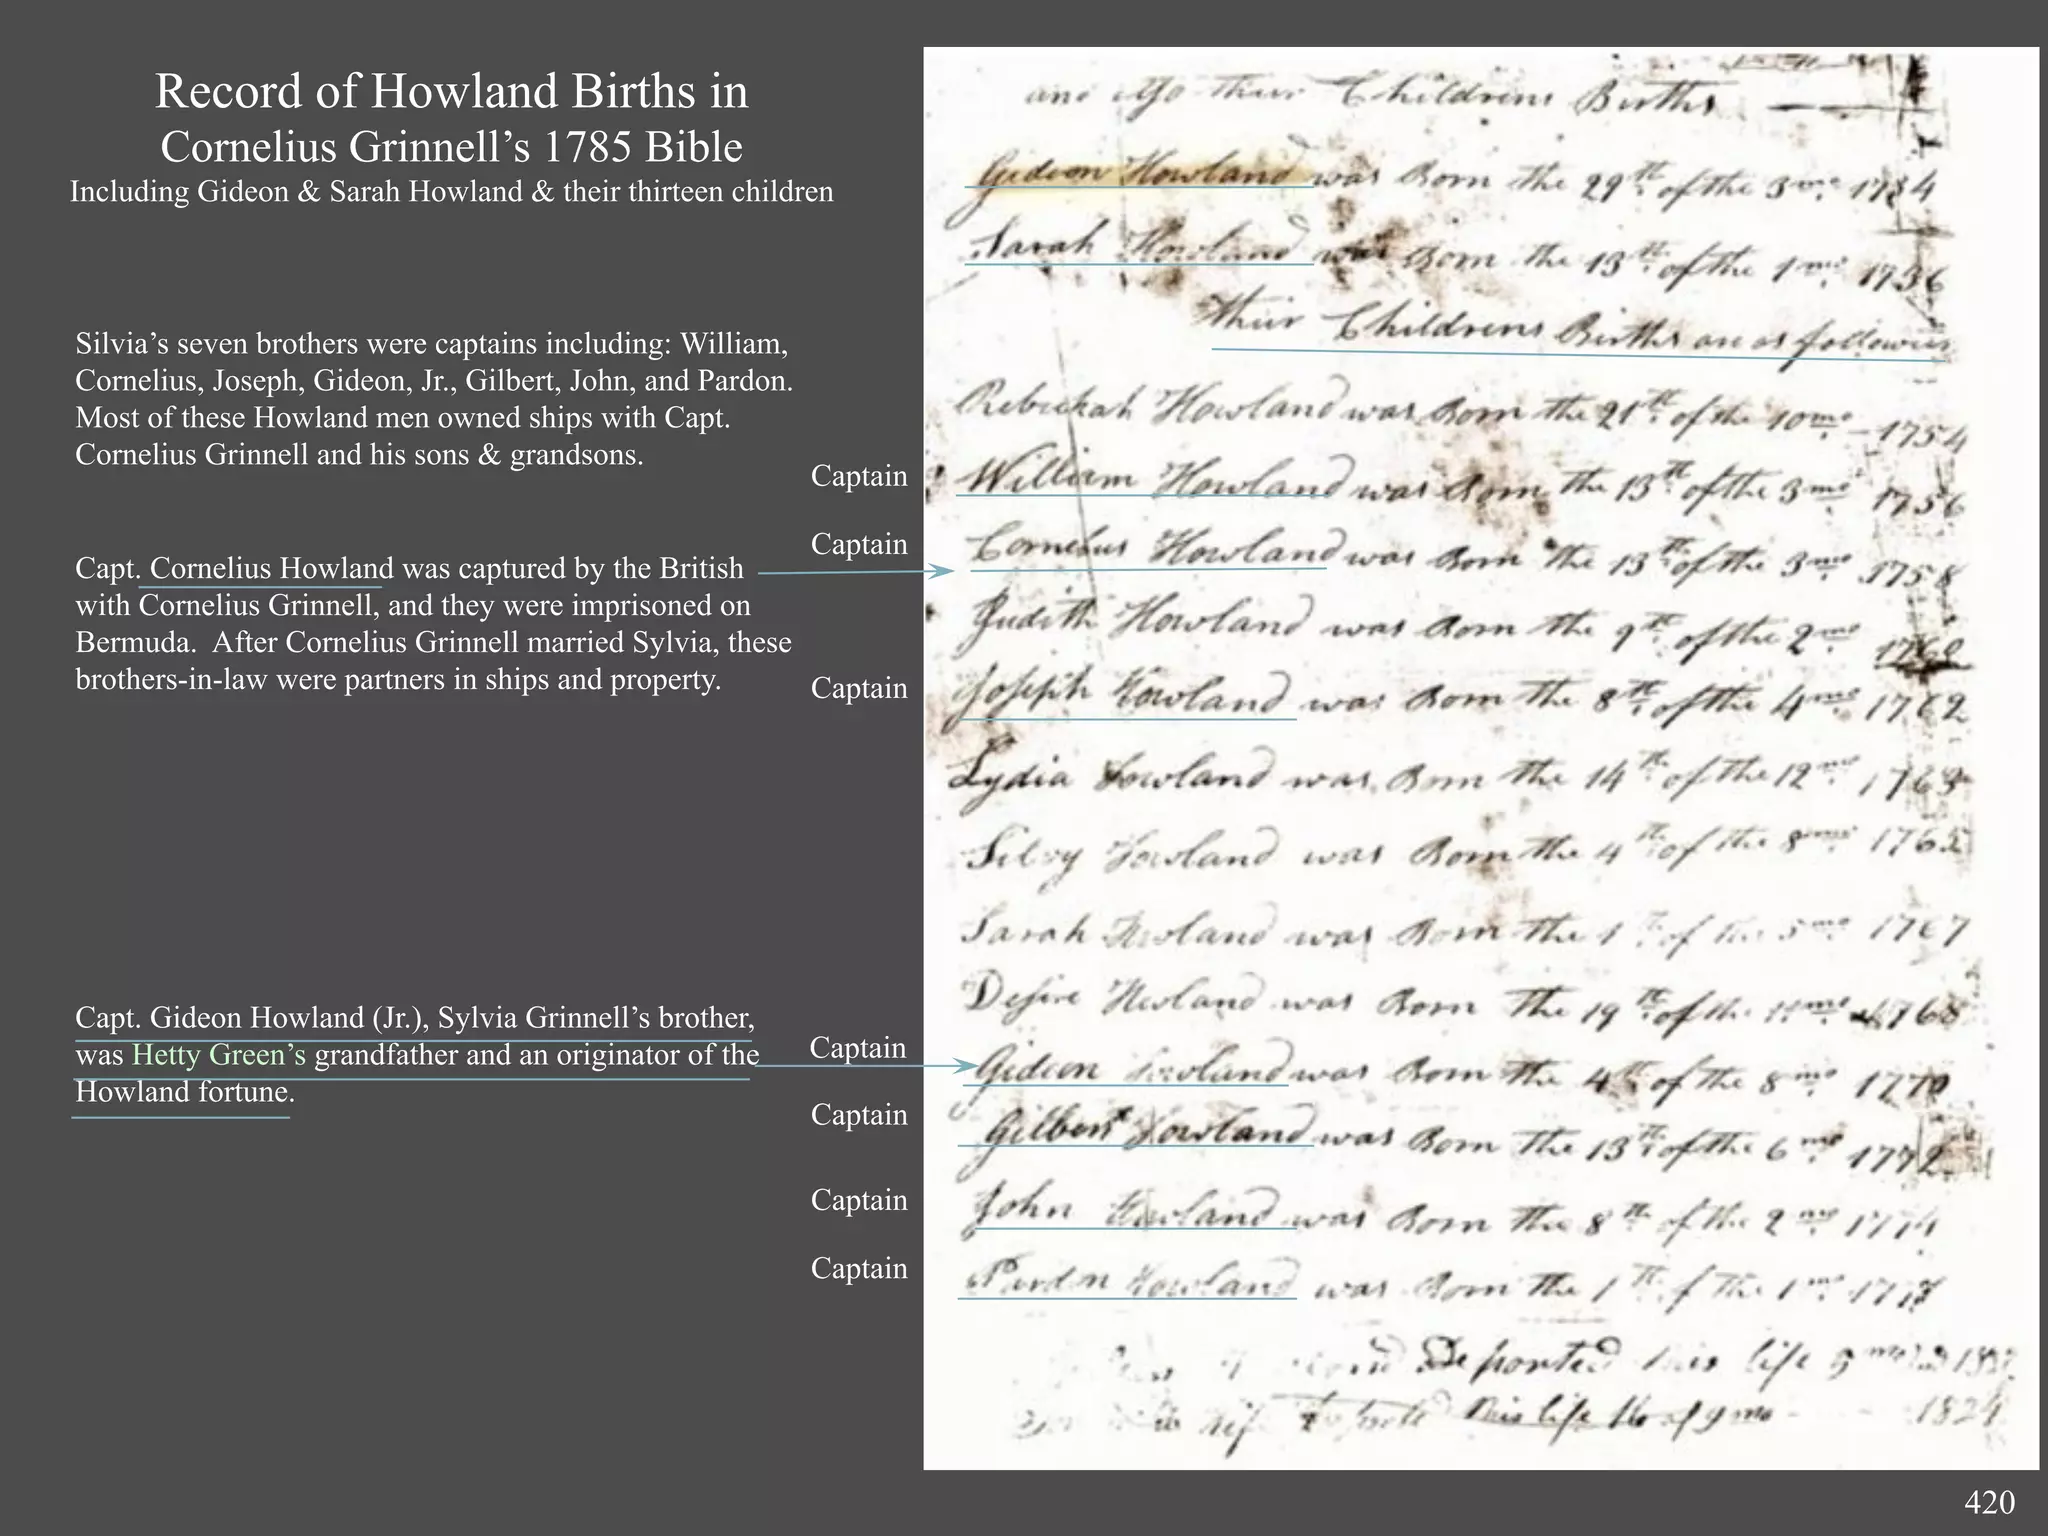 Record of Howland Births in
Cornelius Grinnell’s 1785 Bible
Including Gideon & Sarah Howland & their thirteen children
Silvia’s seven brothers were captains including: William,
Cornelius, Joseph, Gideon, Jr., Gilbert, John, and Pardon.
Most of these Howland men owned ships with Capt.
Cornelius Grinnell and his sons & grandsons.
Capt. Cornelius Howland was captured by the British
with Cornelius Grinnell, and they were imprisoned on
Bermuda. After Cornelius Grinnell married Sylvia, these
brothers-in-law were partners in ships and property.
Capt. Gideon Howland (Jr.), Sylvia Grinnell’s brother,
was Hetty Green’s grandfather and an originator of the
Howland fortune.
Captain
Captain
Captain
Captain
Captain
Captain
Captain
and Also their Childrens Births
Gideon Howland was Born the 29th of the 3mo 1734
Sarah Howland was Born the 13th of the 1mo 1736
their Childrens Births are as follows
Rebeckah Howland was Born the 21th of the 10mo 1754
William Howland was Born the 13th of the 3mo 1756
Cornelius Howland was Born the 13th of the 3mo 1758
Judith Howland was Born the 9th of the 2mo
Joseph Howland was Born the 8th of the 4mo 1762
Lydia Howland was Born the 14th of the 12mo 1763
Silvy Howland was Born the 4th of the 8mo 1765
Sarah Howland was Born the 1 of the 5mo 1767
Desire Howland was Born the 19th of the 11mo 1768
Gideon Howland was Born the 4th of the 8mo 1770
Gilbert Howland was Born the 13th of the 6mo 1772
John Howland was Born the 8th of the 2mo 1774
Pardon Howland was Born the 1 of the 1mo
Departed this life 9mo
this life 16 of 9mo 1824
420